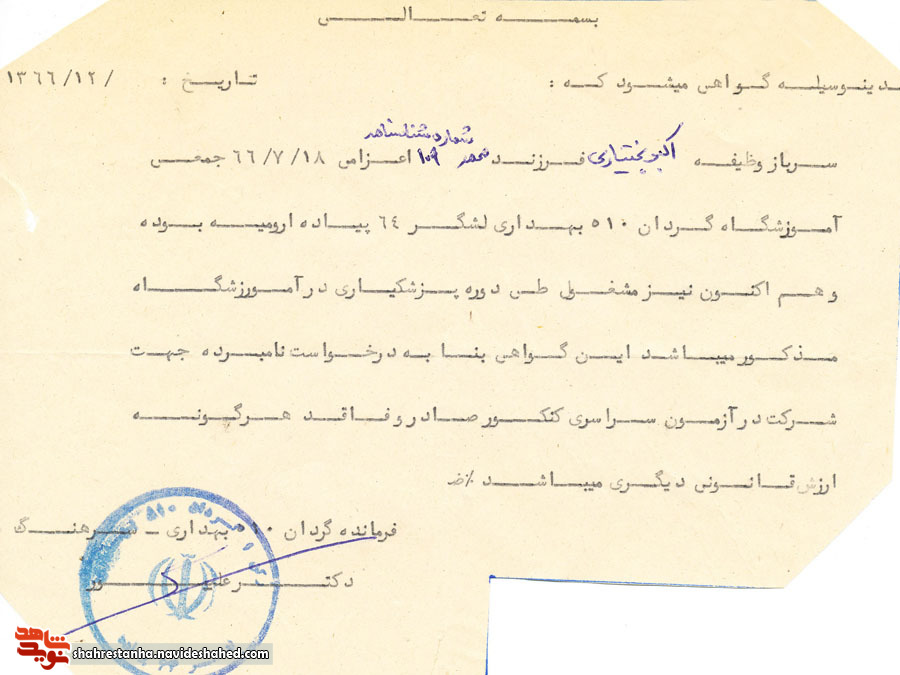 بسمه تعالی
بدینوسیله گواهی میشود که : تاریخ : / ۱۳۶۶/۱۲
سرباز وظیفه اکبر بختیاری فرزند محمد شماره شناسنامه ۱۰۹ اعزامی ۶۶/۷/۱۸ جمعی
آموزشگاه گردان ۵۱۰ بهداری لشگر ۶۴ پیاده ارومیه بوده
و هم اکنون نیز مشغول طی دوره پزشکیاری در آمورزشگاه
مذکور میباشد این گواهی بنا به درخواست نامبرده جهت
شرکت در آزمون سراسری کنکور صادر و فاقد هرگونه
ارزش قانونی دیگری میباشد
فرمانده گردان ۵۱۰ بهداری - سرهنگ
دکتر
نوید شاهد
shahrestanha.navideshahed.com